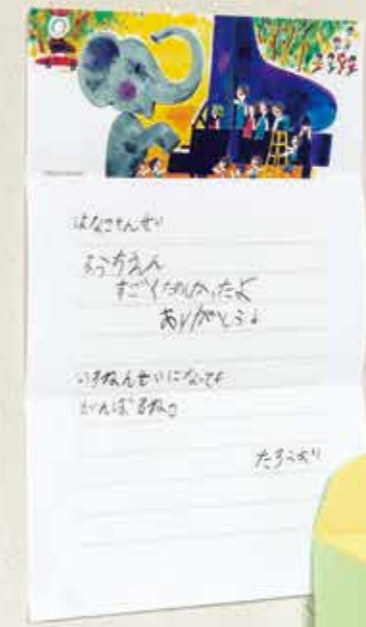 はなこせんせい
ようちえん
すごくたのしかったよ
ありがとう!
いちねんせいになっても
がんばるね!
たろうより